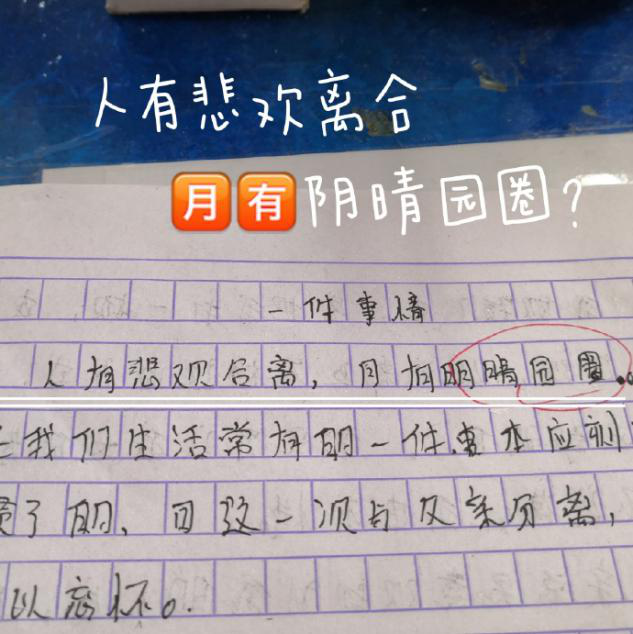 人有悲欢离合
月有阴晴园圈?
一件事情
人有悲观合离，月有明晴园圈。
我们生活常有的一件事本应刻
了的，回这一次与父亲分离，
以忘怀。